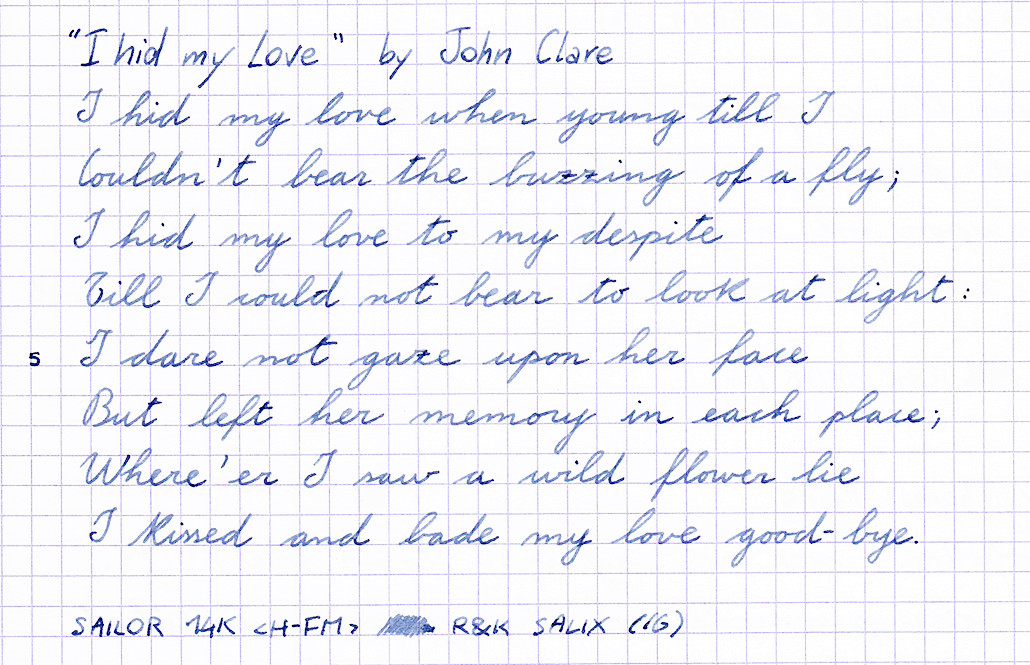 "I hid my Love" by John Clare
I hid my love when young till I
Couldn't bear the buzzing of a fly;
I hid my love to my despite
Till I could not bear to look at light:
5 I dare not gaze upon her face
But left her memory in each place;
Where'er I saw a wild flower lie
I kissed and bade my love good-bye.
SAILOR 14K <H-FM> R&K SALIX (IG)